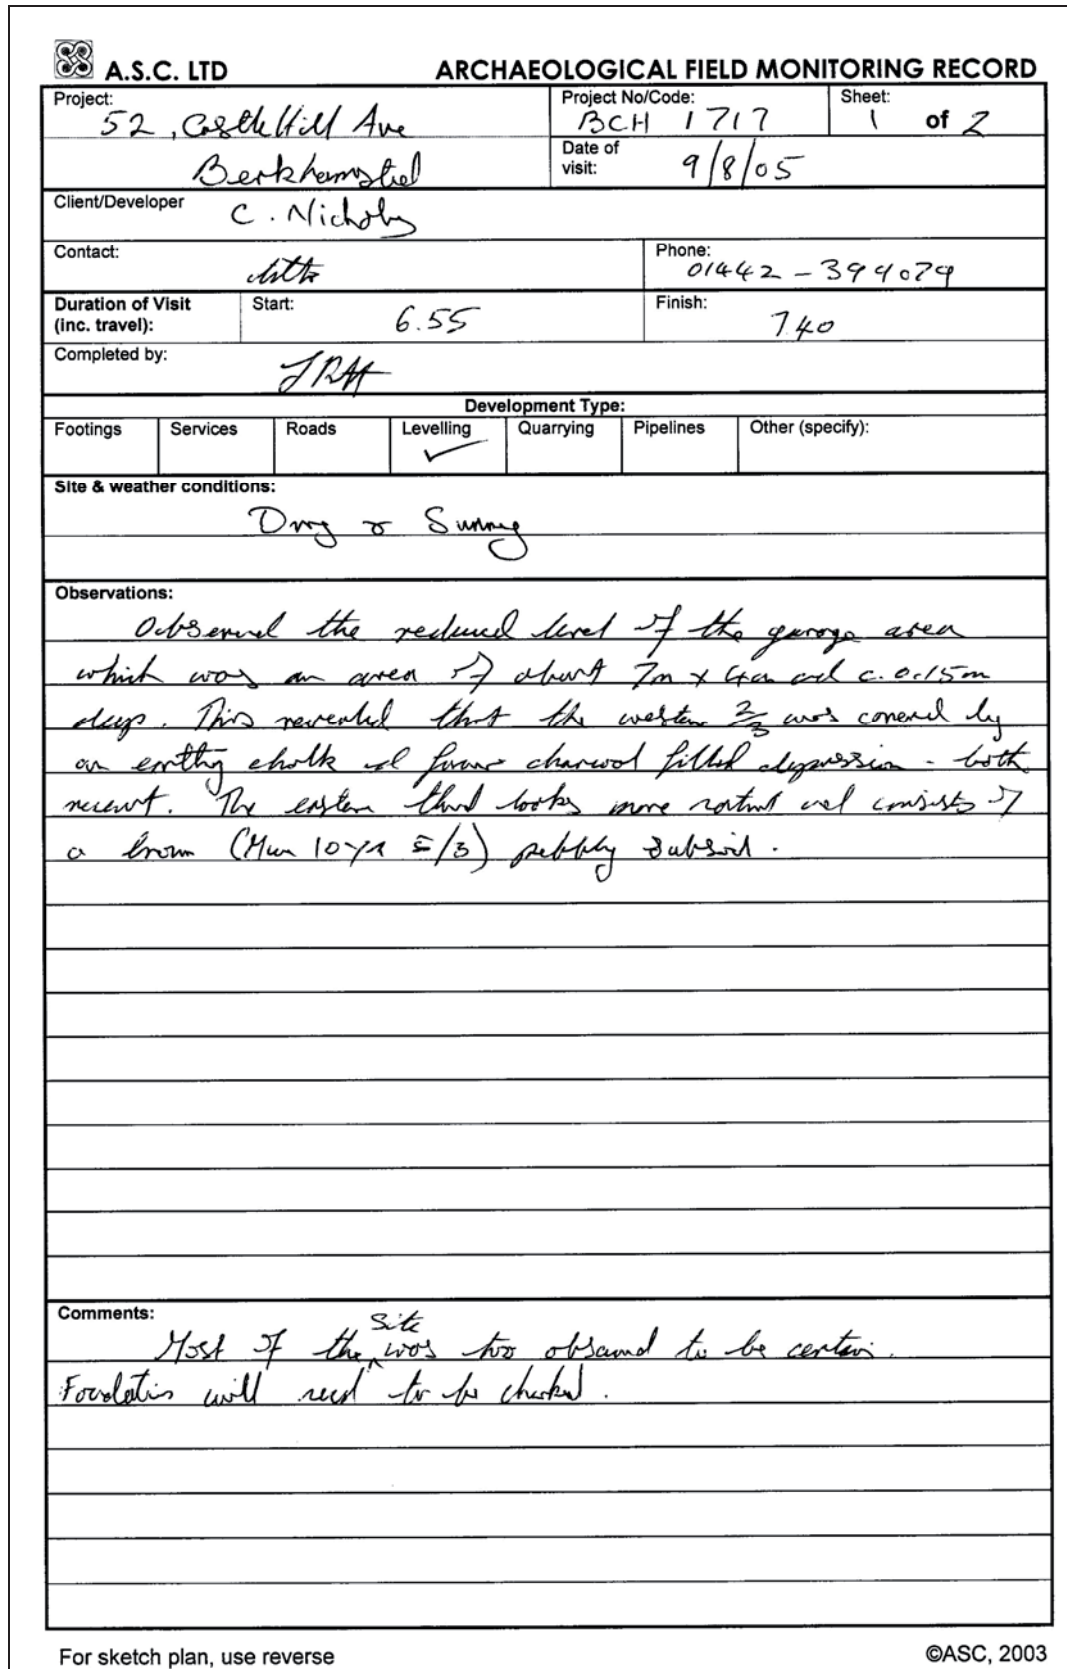 A.S.C. LTD
ARCHAEOLOGICAL FIELD MONITORING RECORD
Project: 52, Castle Hill Ave
Berkhamsted
Project No/Code: BCH 1717
Sheet: 1 of 2
Date of visit: 9/8/05
Client/Developer C. Nicholy
Contact:
Phone: 01442-394079
Duration of Visit (inc. travel):
Start: 6.55
Finish: 7.40
Completed by:
Development Type:
Footings Services Roads Levelling ✓ Quarrying Pipelines Other (specify):
Site & weather conditions:
Dry & Sunny
Observations:
Observed the reduced level of the garage area
which was an area of about 7m x 4m and c. 0.15m
deep. This revealed that the western 2/3 was covered by
an earthy chalk and charcoal filled depression - both
recent. The eastern third looks more natural and consists of
a brown (Mun 10 YR 5/3) pebbly subsoil.
Comments:
Most of the site was too obscured to be certain.
Foundations will need to be checked.
For sketch plan, use reverse
©ASC, 2003